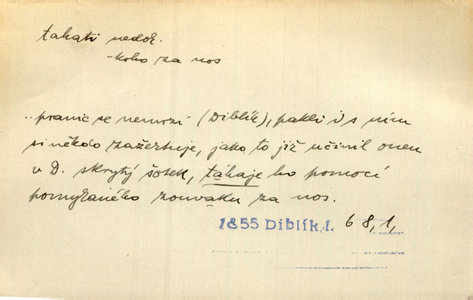 tahati nedok.
-koho za nos
..pranic se nemrzí (Diblík), pakli i s ním
si někdo zažertuje, jako to již učinil onen
v D. skrytý šotek, táhaje ho pomocí
pomyšleného zouváku za nos.
1855 Diblík.1. 68,1,